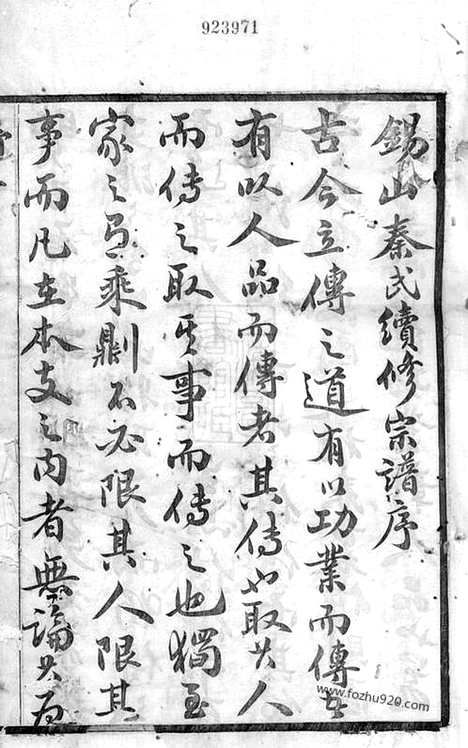 923971
錫山秦氏續修宗譜序
古今立傳之道有以功業而傳者
有以人品而傳者其傳也取其人
而傳之取其事而傳之也獨至
家之有乘則不必限其人限其
事而凡在本支之內者無論其為
www.fozhu920.com